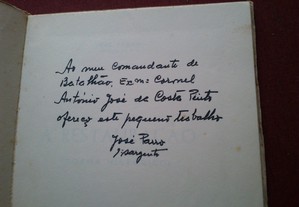 Ao meu Comandante de
Batalhão, Exmº Coronel
António José da Costa Pinto
ofereço este pequeno trabalho
José Parro
1º Sargento